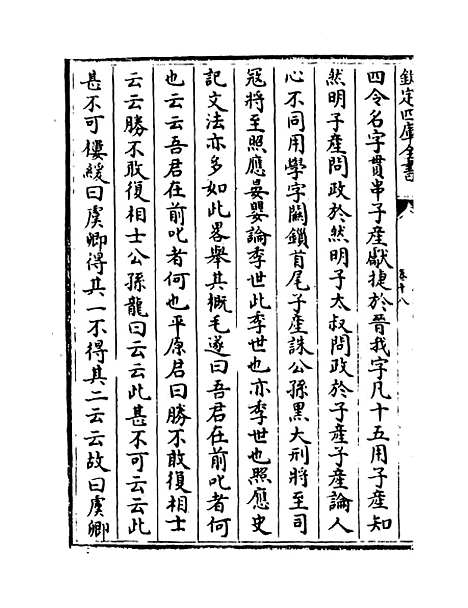 欽定四庫全書
卷十八
四令名字貫串子産獻捷於晉我字凡十五用子産知
然明子産問政於然明子大叔問政於子産子産論人
心不同用學字關鎖首尾子産誅公孫黑大刑將至司
寇將至照應晏嬰論季世此季世也亦季世也照應史
記文法亦多如此畧舉其概毛遂曰吾君在前叱者何
也云云吾君在前叱者何也平原君曰勝不敢復相士
云云勝不敢復相士公孫龍曰云云此甚不可云云此
甚不可樓緩曰虞卿得其一不得其二云云故曰虞卿